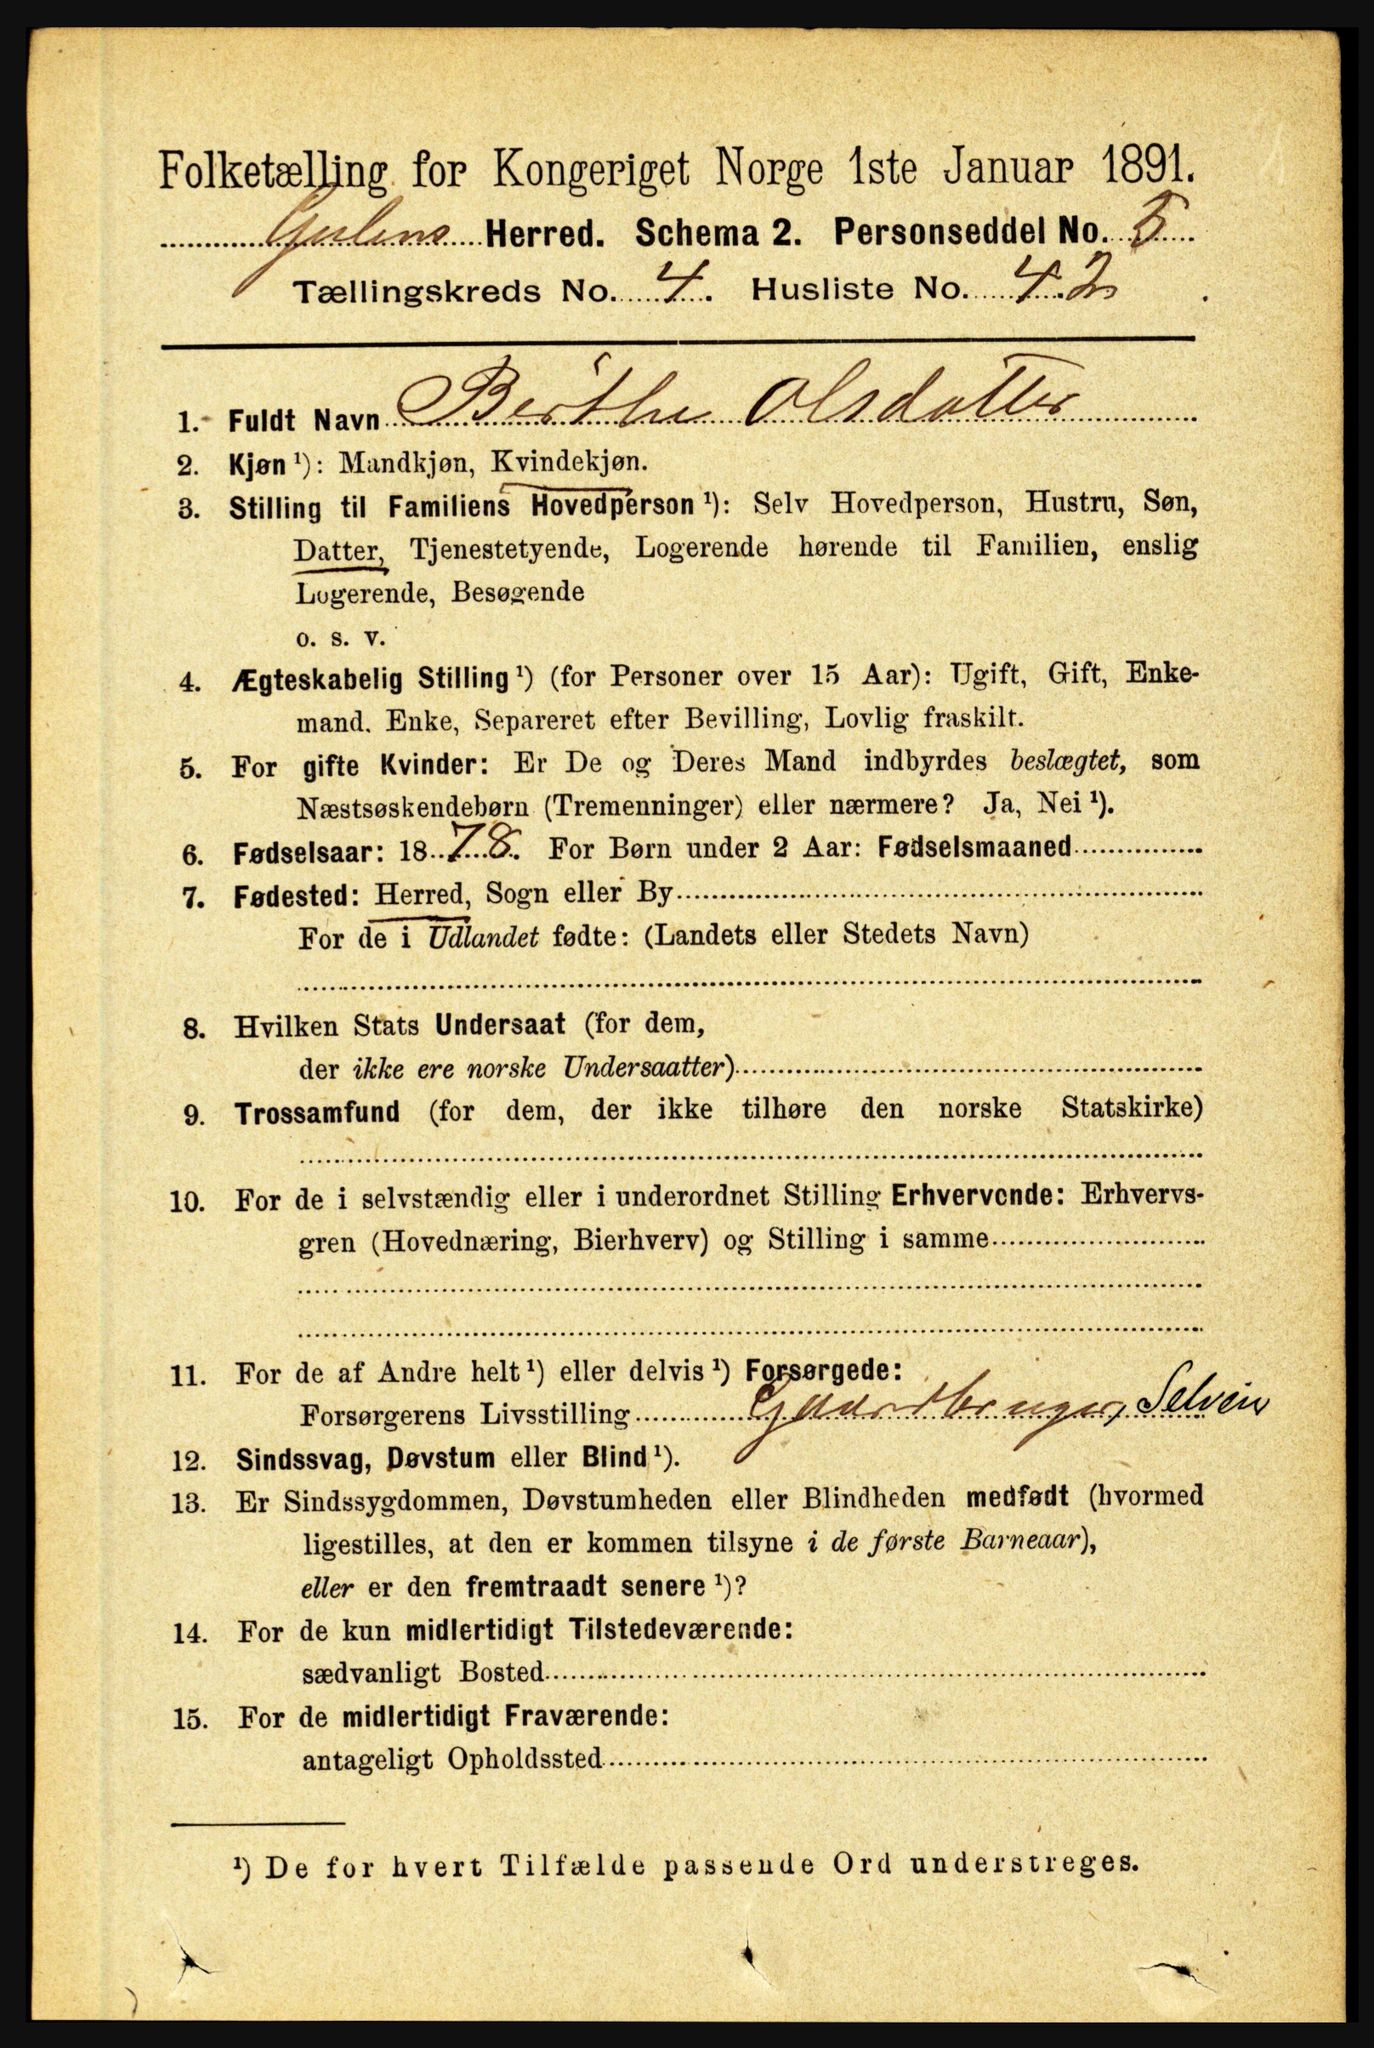 Folketælling for Kongeriget Norge 1ste Januar 1891.
Gulens Herred. Schema 2. Personseddel No. 5
Tællingskreds No. 4. Husliste No. 42
1. Fuldt Navn Berthe Olsdatter
2. Kjøn ¹): Mandkjøn, Kvindekjøn.
3. Stilling til Familiens Hovedperson ¹): Selv Hovedperson, Hustru, Søn,
Datter, Tjenestetyende, Logerende hørende til Familien, enslig
Logerende, Besøgende
o. s. v.
4. Ægteskabelig Stilling ¹) (for Personer over 15 Aar): Ugift, Gift, Enke-
mand. Enke, Separeret efter Bevilling, Lovlig fraskilt.
5. For gifte Kvinder: Er De og Deres Mand indbyrdes beslægtet, som
Næstsøskendebørn (Tremenninger) eller nærmere? Ja, Nei ¹).
6. Fødselsaar: 1878. For Børn under 2 Aar: Fødselsmaaned
7. Fødested: Herred, Sogn eller By
For de i Udlandet fødte: (Landets eller Stedets Navn)
8. Hvilken Stats Undersaat (for dem,
der ikke ere norske Undersaatter)
9. Trossamfund (for dem, der ikke tilhøre den norske Statskirke)
10. For de i selvstændig eller i underordnet Stilling Erhvervende: Erhvervs-
gren (Hovednæring, Bierhverv) og Stilling i samme
11. For de af Andre helt ¹) eller delvis ¹) Forsørgede:
Forsørgerens Livsstilling Gaardbruger, Selveier
12. Sindssvag, Døvstum eller Blind ¹).
13. Er Sindssygdommen, Døvstumheden eller Blindheden medfødt (hvormed
ligestilles, at den er kommen tilsyne i de første Barneaar),
eller er den fremtraadt senere ¹)?
14. For de kun midlertidigt Tilstedeværende:
sædvanligt Bosted
15. For de midlertidigt Fraværende:
antageligt Opholdssted
¹) De for hvert Tilfælde passende Ord understreges.